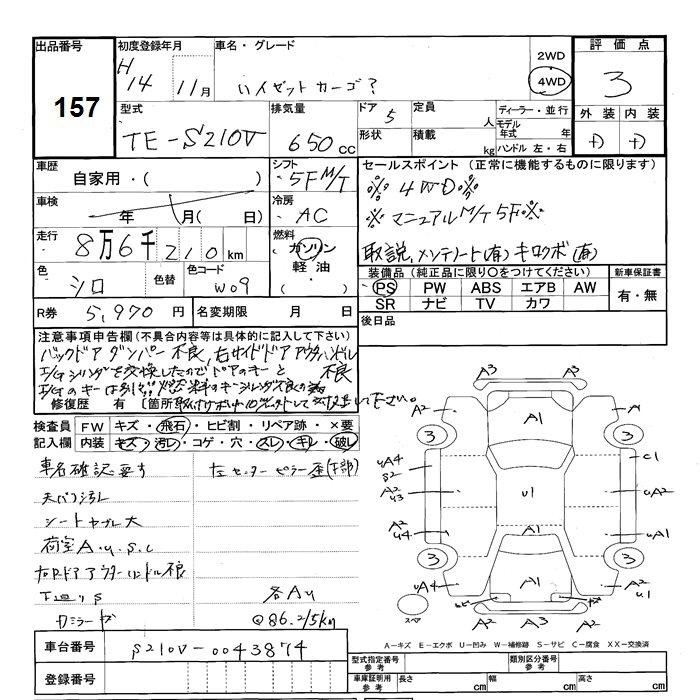 出品番号
157
初度登録年月
H14年 11月
車名・グレード
ハイゼットカーゴ?
2WD
4WD
評価点
3
型式
TE-S210V
排気量
650cc
ドア 5
定員 人
形状
積載 kg
ディーラー・並行
モデル年式 年
ハンドル 左・右
外装
内装
車歴
自家用・( )
シフト
5F M/T
セールスポイント (正常に機能するものに限ります)
※4WD※
※マニュアルM/T 5F※
取説、メンテノート(有) キロクボ(有)
車検
年 月( 日)
冷房
AC
走行
8万6千210km
燃料
ガソリン
軽油・
色
シロ
色替
色コード
W09
装備品 (純正品に限り○をつけてください)
PS PW ABS エアB AW
SR ナビ TV カワ
新車保証書
有・無
R券 5,970円
名変期限 月 日
後日品
注意事項申告欄 (不具合内容等は具体的に記入して下さい)
バックドアダンパー不良, 右サイドドアアウタハンドル不良
E/Gシリンダを交換したのでドアのキーと
修復歴 有 [箇所
検査員記入欄
FW キズ・飛石・ヒビ割・リペア跡・×要
内装 キズ・汚レ・コゲ・穴・スレ・キレ・破レ
車名確認要す
左センターピラー歪(下部)
天バリ汚レ
シートヤブレ大
荷室A.U.S.C
右Rドアアウターハンドル不良
下廻りS
各AU
◎86.215km
車台番号
S210V-0043874
登録番号
A3 A3
A2 A1 A
3 3
UA4 S2 C1
A2 U3 U1 UA2
A2 U4 A1 UA1
3 3
UA4 A1 A2 U1
スペア
A2 A3 A2
A-キズ E-エクボ U-凹み W-補修跡 S-サビ C-腐食 XX-交換済
型式指定番号 参考
類別区分番号 参考
車庫証明用 参考
長さ cm
幅 cm
高さ cm